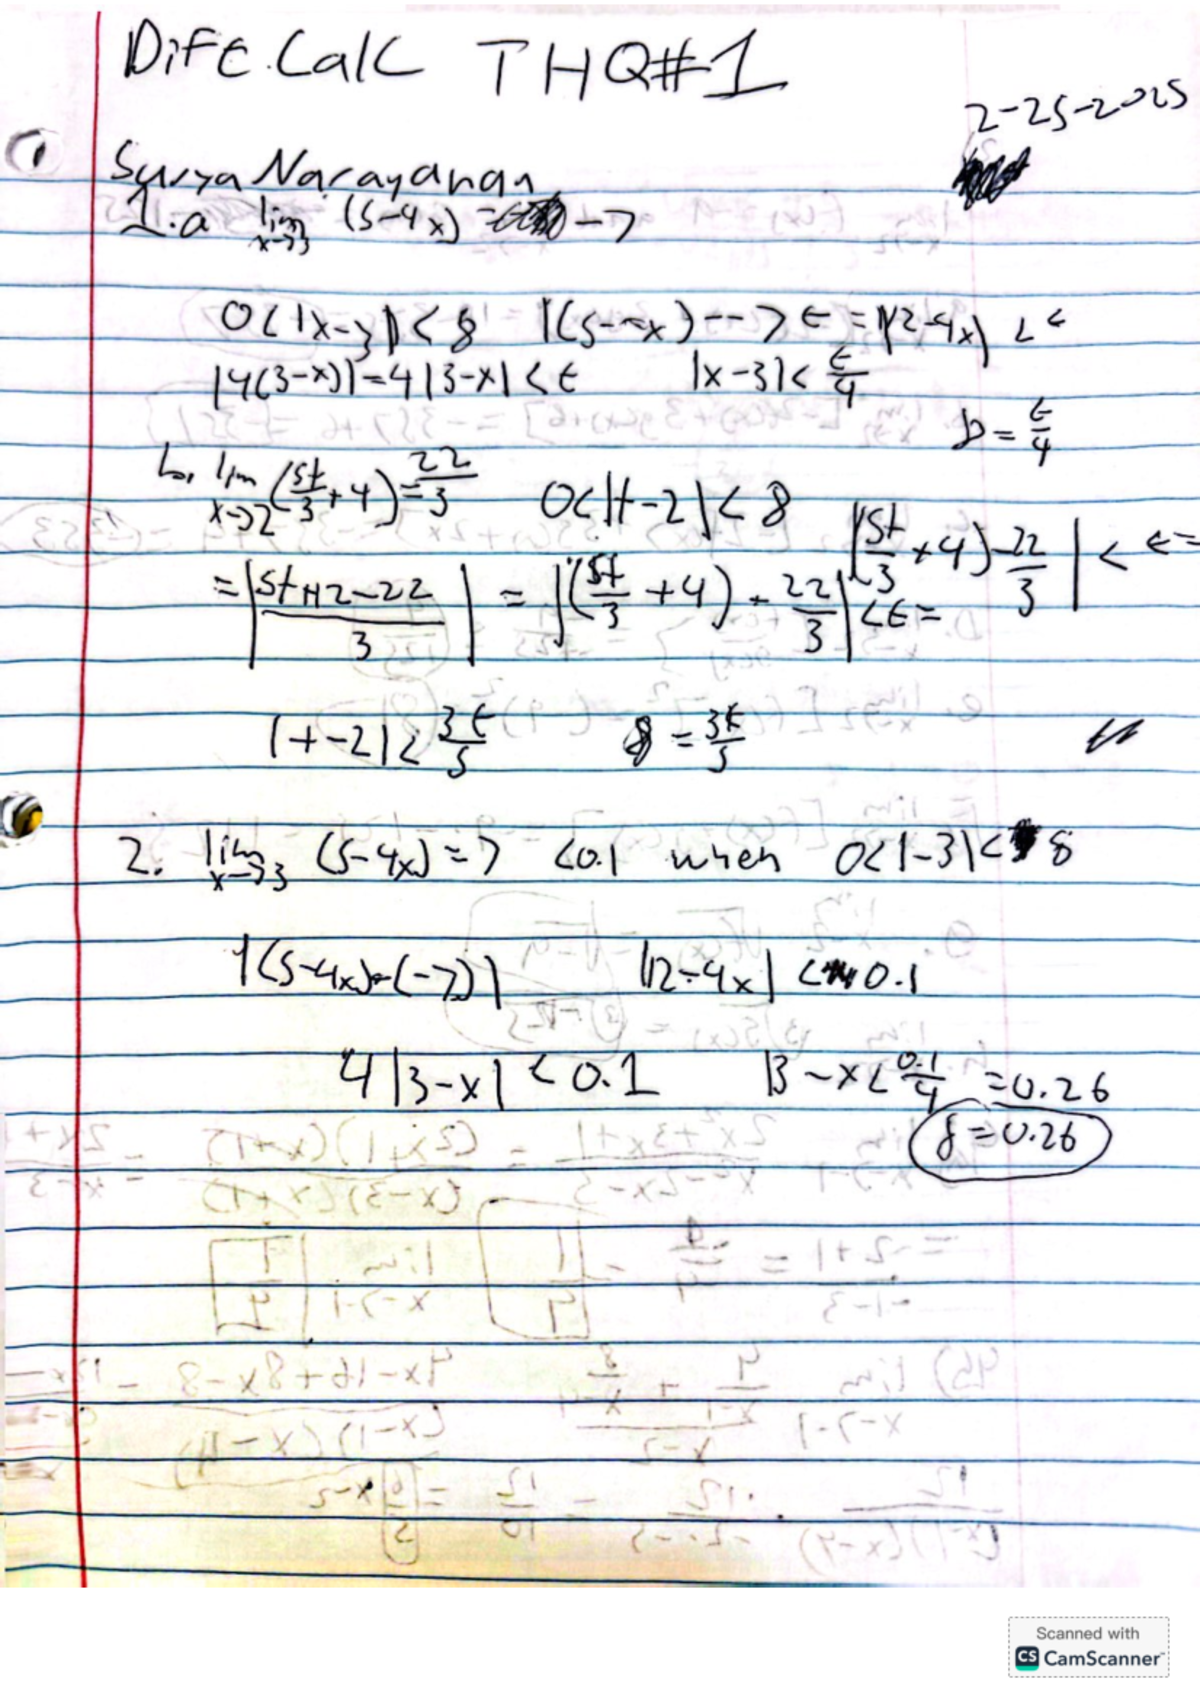 Diff. Calc THQ#1
2-25-2025
Surya Narayanan
1.a lim x→3 (5-4x) = -7
0<|x-3|<8 |(5-4x)--7 ϵ = |12-4x| < ϵ
|4(3-x)|=4|3-x|<ϵ |x-3|< ϵ/4
δ = ϵ/4
b. lim x→2 (5t/3 + 4) = 22/3 0<|t-2|<8 |(5t/3 + 4) - 22/3| < ϵ =
= |5t+12-22 / 3| = |(5t/3 + 4) - 22/3| < ϵ =
|t-2| < 3ϵ/5 8 = 3ϵ/5
2. lim x→3 (5-4x) = 7 <0.1 when 0<|-3|< 8
|(5-4x)-(-7)| |12-4x| < 0.1
4|3-x| < 0.1 |3-x < 0.1/4 = 0.26
δ = 0.26
Scanned with
CS CamScanner